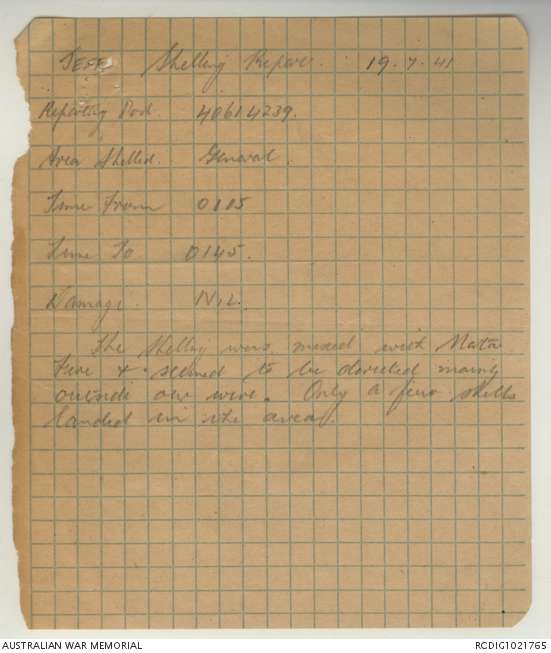 JEFF Shelling Report. 19.7.41
Reporting Pod. 40614239.
Area Shelled. General.
Time From 0115
Time To 0145.
Damage. NIL.
The shelling was mixed with Mortar
Fire & seemed to be directed mainly
outside our wire. Only a few shells
landed in the area.
AUSTRALIAN WAR MEMORIAL
RCDIG1021765